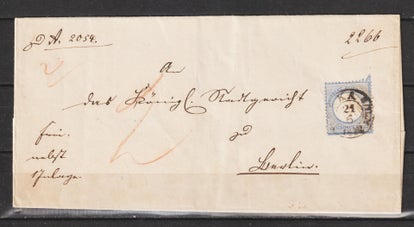 A. 2054.
2266
An
das Königl. Stadtgericht
zu
Berlin.
frei
nebst
1 Anlage.
21